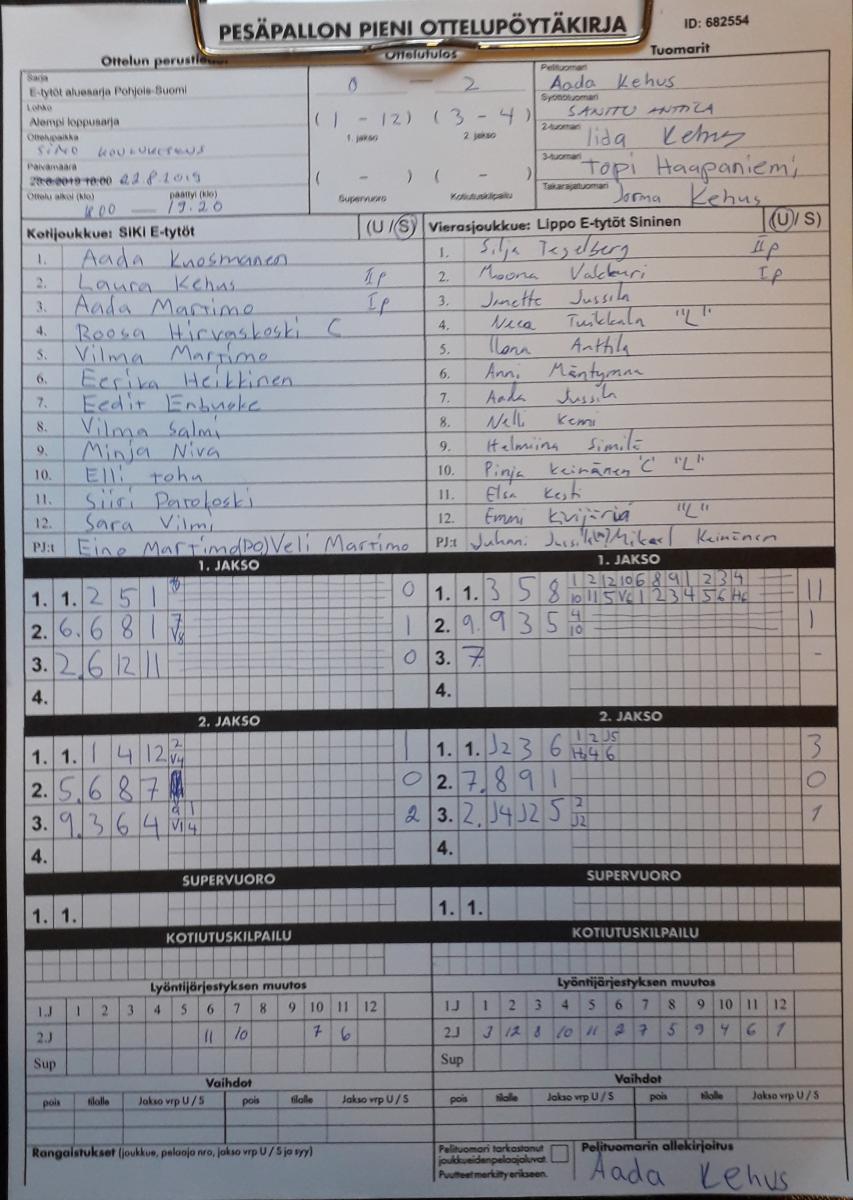 PESÄPALLON PIENI OTTELUPÖYTÄKIRJA
ID: 682554
Ottelun perustiedot
Ottelutulos
Tuomarit
Sarja
E-tytöt aluesarja Pohjois-Suomi
Lohko
Alempi loppusarja
Ottelupaikka
SIMO
Päivämäärä
22.8.2019
Ottelu alkoi (klo) päättyi (klo)
— 19.20
0 — 2
( 1 - 12 ) ( 3 - 4 )
1. jakso 2. jakso
( - ) ( - )
Supervuoro Kotiutuskilpailu
Pelituomari
Aada Kehus
Syöttötuomari
SANTTU ANTTILA
2-tuomari
Iida Kehus
3-tuomari
Topi Haapaniemi
Takarajatuomari
Jorma Kehus
Kotijoukkue: SiKi E-tytöt (U / S)
1. Aada Kuosmanen
2. Laura Kehus IIp
3. Aada Martimo Ip
4. Roosa Hirvaskoski C
5. Vilma Martimo
6. Eerika Heikkinen
7. Eedit Enbuske
8. Vilma Salmi
9. Minja Niva
10. Elli
11. Siiri
12. Sara Vilmi
PJ:t Eino Martimo (PO) Veli Martimo
Vierasjoukkue: Lippo E-tytöt Sininen (U / S)
1. Silja Tegelberg IIp
2. Moona Valkkuri Ip
3. Jenette Jussila
4. Neea Tuikkala "L"
5. Ilona Anttila
6. Anni
7. Aada Jussila
8. Nelli Kemi
9. Helmiina Similä
10. Pinja Keinänen "C" "L"
11. Elsa Kesti
12. Emmi "L"
PJ:t Juhani Mikael Keinänen
1. JAKSO
1. 1. 2 5 1 0
2. 6. 6 8 1 7 V8 1
3. 2. 6 12 11 0
4.
1. JAKSO
1. 1. 3 5 8 1 2 12 10 6 8 9 1 2 3 4 11
10 11 5 V6 1 2 3 4 5 6 H6
2. 9. 9 3 5 4 10 1
3. 7. -
4.
2. JAKSO
1. 1. 1 4 12 2 V4 1
2. 5. 6 8 7 0
3. 9. 3 6 4 9 1 V1 4 2
4.
2. JAKSO
1. 1. J2 3 6 1 2 J5 3
H3 4 6
2. 7. 8 9 1 0
3. 2. J4 J2 5 2 J2 1
4.
SUPERVUORO
1. 1.
SUPERVUORO
1. 1.
KOTIUTUSKILPAILU
KOTIUTUSKILPAILU
Lyöntijärjestyksen muutos
1.J 1 2 3 4 5 6 7 8 9 10 11 12
2.J 11 10 7 6
Sup
Lyöntijärjestyksen muutos
1.J 1 2 3 4 5 6 7 8 9 10 11 12
2.J 3 12 8 10 11 2 7 5 9 4 6 1
Sup
Vaihdot
pois tilalle Jakso vrp U / S pois tilalle Jakso vrp U / S
Vaihdot
pois tilalle Jakso vrp U / S pois tilalle Jakso vrp U / S
Rangaistukset (joukkue, pelaaja nro, jakso vrp U / S ja syy)
Pelituomari tarkastanut
joukkueiden pelaajaluvat.
Puutteet merkitty erikseen.
Pelituomarin allekirjoitus
Aada Kehus